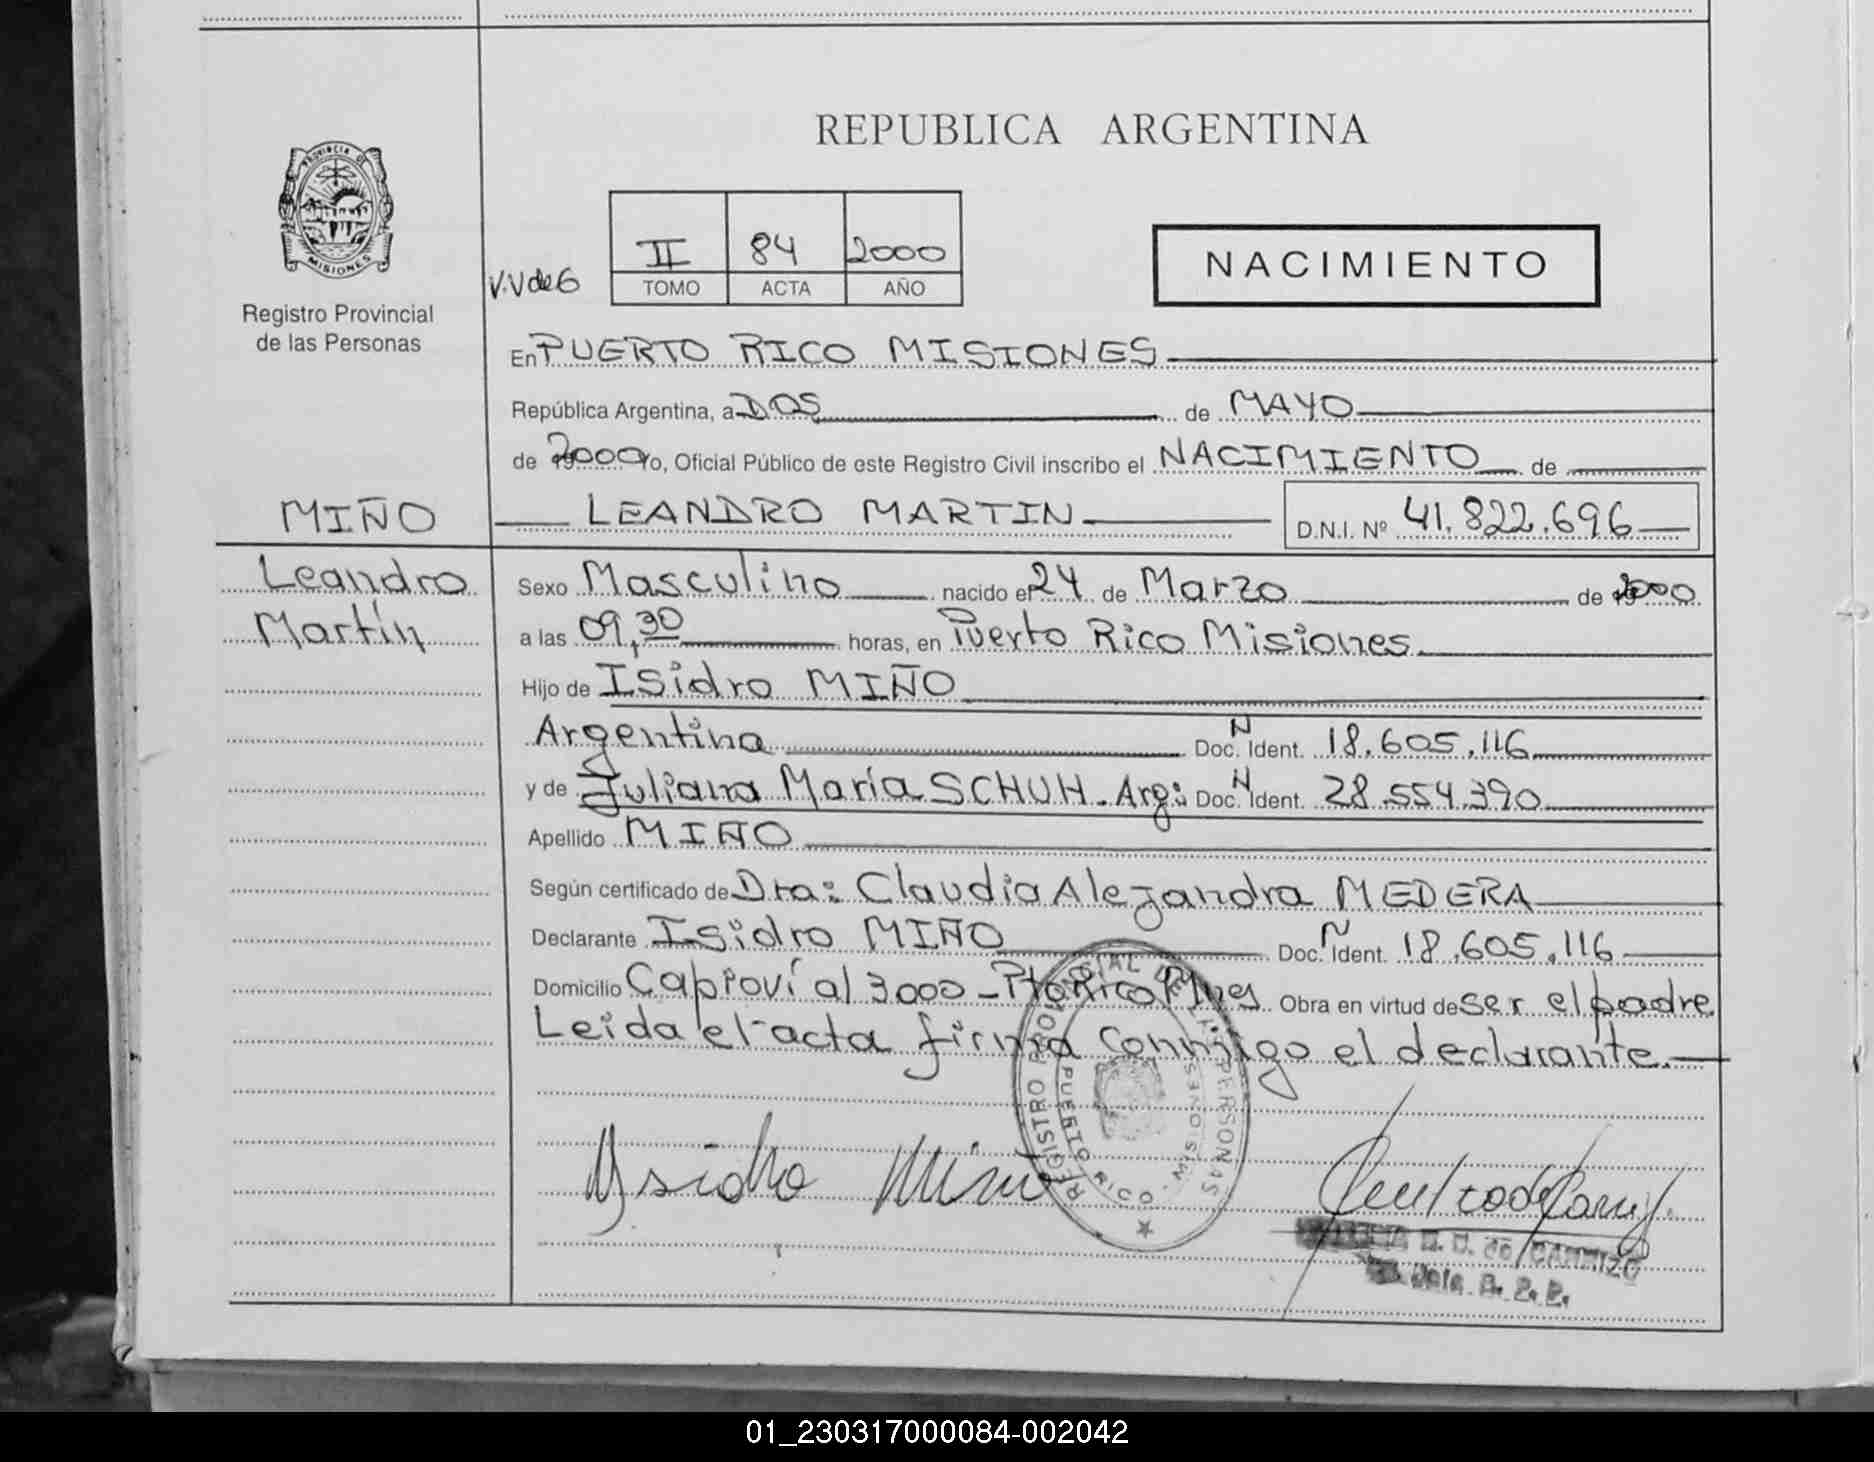 PROVINCIA DE
MISIONES
Registro Provincial
de las Personas
REPUBLICA ARGENTINA
II 84 2000
TOMO ACTA AÑO
V.V de G
NACIMIENTO
En PUERTO RICO MISIONES
República Argentina, a DOS de MAYO
de 2000 Yo, Oficial Público de este Registro Civil inscribo el NACIMIENTO de
MIÑO
LEANDRO MARTIN D.N.I. Nº 41.822.696
Leandro
Martín
Sexo Masculino nacido el 24 de Marzo de 2000
a las 09,30 horas, en Puerto Rico Misiones
Hijo de Isidro MIÑO
Argentina Doc. N Ident. 18.605.116
y de Juliana María SCHUH. Arg: Doc. N Ident. 28.554.390
Apellido MIÑO
Según certificado de Dra: Claudia Alejandra MEDERA
Declarante Isidro MIÑO Doc. N Ident. 18.605.116
Domicilio Capioví al 3000 - Pto Rico Mnes Obra en virtud de ser el padre
Leida el acta firma conmigo el declarante.
REGISTRO PROVINCIAL DE LAS PERSONAS
PUERTO RICO - MISIONES
Isidro Miño
D. de CARRIZO
01_230317000084-002042